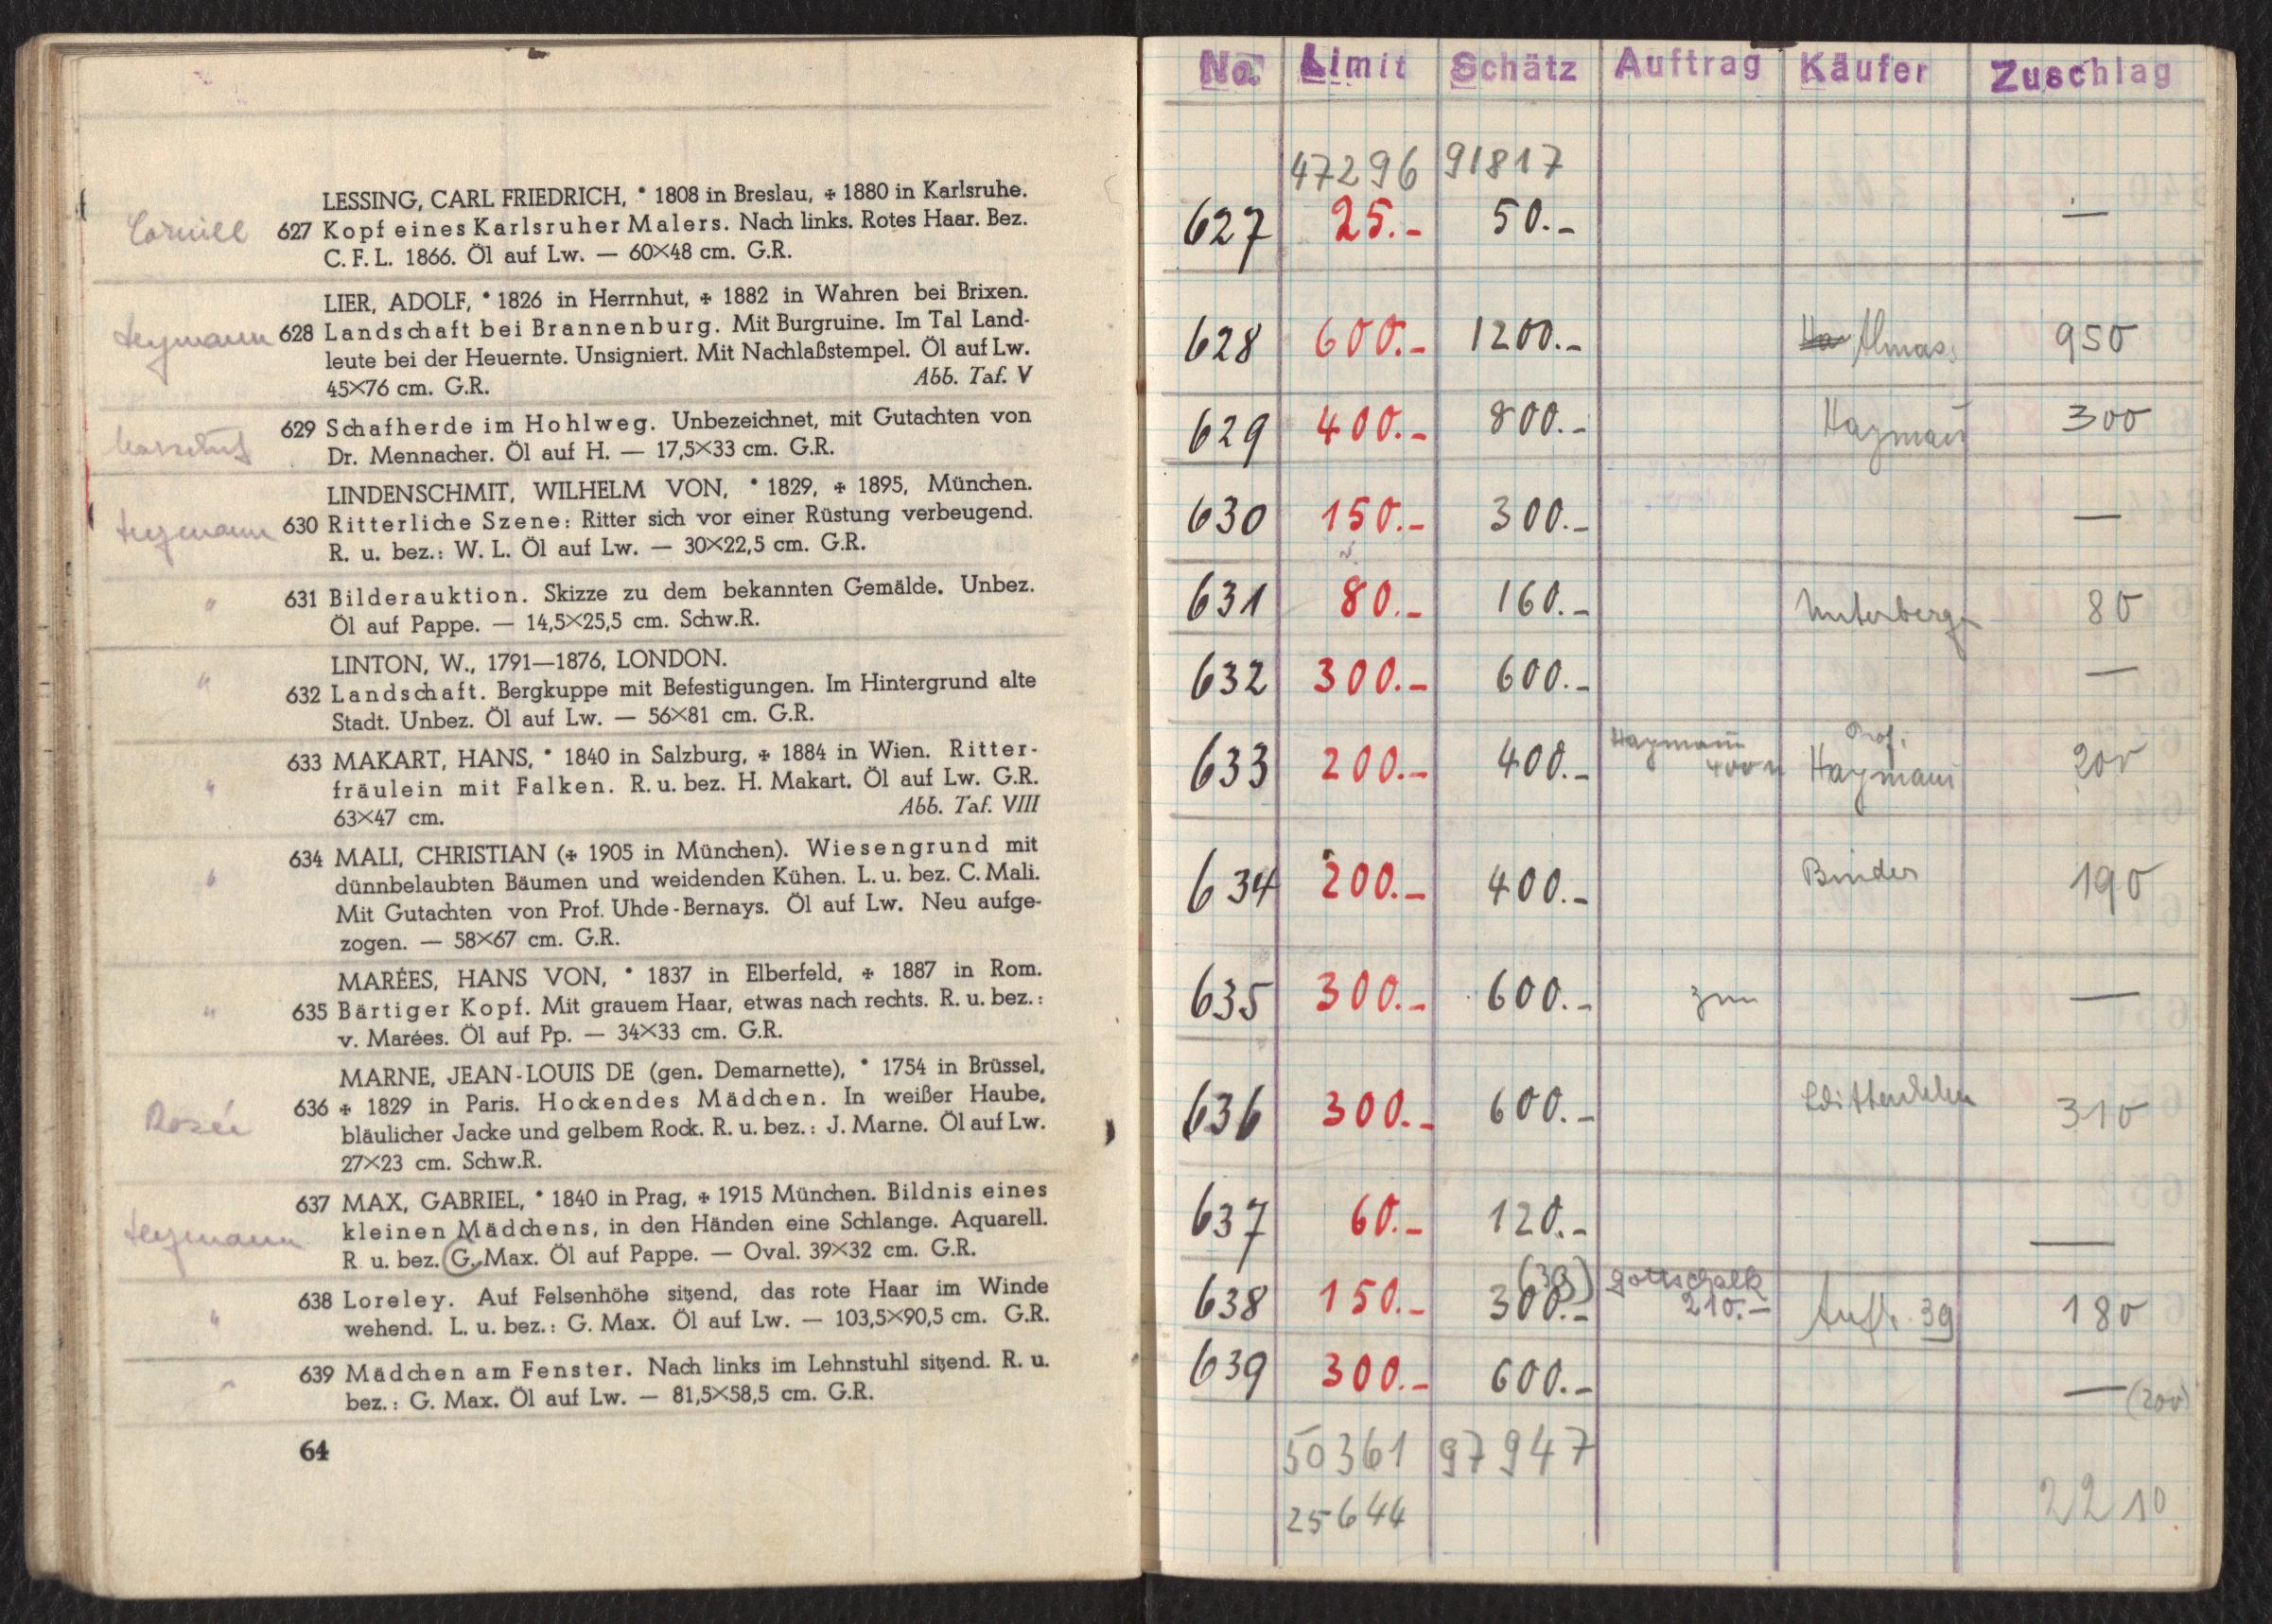 LESSING, CARL FRIEDRICH, * 1808 in Breslau, ✠ 1880 in Karlsruhe.
627 Kopf eines Karlsruher Malers. Nach links. Rotes Haar. Bez.
C. F. L. 1866. Öl auf Lw. — 60×48 cm. G.R.
LIER, ADOLF, * 1826 in Herrnhut, ✠ 1882 in Wahren bei Brixen.
628 Landschaft bei Brannenburg. Mit Burgruine. Im Tal Land-
leute bei der Heuernte. Unsigniert. Mit Nachlaßstempel. Öl auf Lw.
45×76 cm. G.R. Abb. Taf. V
629 Schafherde im Hohlweg. Unbezeichnet, mit Gutachten von
Dr. Mennacher. Öl auf H. — 17,5×33 cm. G.R.
LINDENSCHMIT, WILHELM VON, * 1829, ✠ 1895, München.
630 Ritterliche Szene: Ritter sich vor einer Rüstung verbeugend.
R. u. bez.: W. L. Öl auf Lw. — 30×22,5 cm. G.R.
" 631 Bilderauktion. Skizze zu dem bekannten Gemälde. Unbez.
Öl auf Pappe. — 14,5×25,5 cm. Schw.R.
LINTON, W., 1791—1876, LONDON.
" 632 Landschaft. Bergkuppe mit Befestigungen. Im Hintergrund alte
Stadt. Unbez. Öl auf Lw. — 56×81 cm. G.R.
633 MAKART, HANS, * 1840 in Salzburg, ✠ 1884 in Wien. Ritter-
" fräulein mit Falken. R. u. bez. H. Makart. Öl auf Lw. G.R.
63×47 cm. Abb. Taf. VIII
634 MALI, CHRISTIAN (✠ 1905 in München). Wiesengrund mit
" dünnbelaubten Bäumen und weidenden Kühen. L. u. bez. C. Mali.
Mit Gutachten von Prof. Uhde-Bernays. Öl auf Lw. Neu aufge-
zogen. — 58×67 cm. G.R.
MARÉES, HANS VON, * 1837 in Elberfeld, ✠ 1887 in Rom.
" 635 Bärtiger Kopf. Mit grauem Haar, etwas nach rechts. R. u. bez.:
v. Marées. Öl auf Pp. — 34×33 cm. G.R.
MARNE, JEAN-LOUIS DE (gen. Demarnette), * 1754 in Brüssel,
636 ✠ 1829 in Paris. Hockendes Mädchen. In weißer Haube,
bläulicher Jacke und gelbem Rock. R. u. bez.: J. Marne. Öl auf Lw.
27×23 cm. Schw.R.
637 MAX, GABRIEL, * 1840 in Prag, ✠ 1915 München. Bildnis eines
kleinen Mädchens, in den Händen eine Schlange. Aquarell.
R u. bez. G. Max. Öl auf Pappe. — Oval. 39×32 cm. G.R.
638 Loreley. Auf Felsenhöhe sitzend, das rote Haar im Winde
" wehend. L. u. bez.: G. Max. Öl auf Lw. — 103,5×90,5 cm. G.R.
639 Mädchen am Fenster. Nach links im Lehnstuhl sitzend. R. u.
bez.: G. Max. Öl auf Lw. — 81,5×58,5 cm. G.R.
64
No. Limit Schätz Auftrag Käufer Zuschlag
47296 91817
627 25.- 50.- —
628 600.- 1200.- 950
629 400.- 800.- Haymann 300
630 150.- 300.- —
631 80.- 160.- Unterberger 80
632 300.- 600.- —
Haymann Prof.
633 200.- 400.- 400 Haymann 200
634 200.- 400.- Binder 190
635 300.- 600.- —
636 300.- 600.- 310
637 60.- 120.- —
(39) Gottschalk
638 150.- 300.- 210.- Auftr. 39 180
639 300.- 600.- — (200)
50361 97947
25644 2210